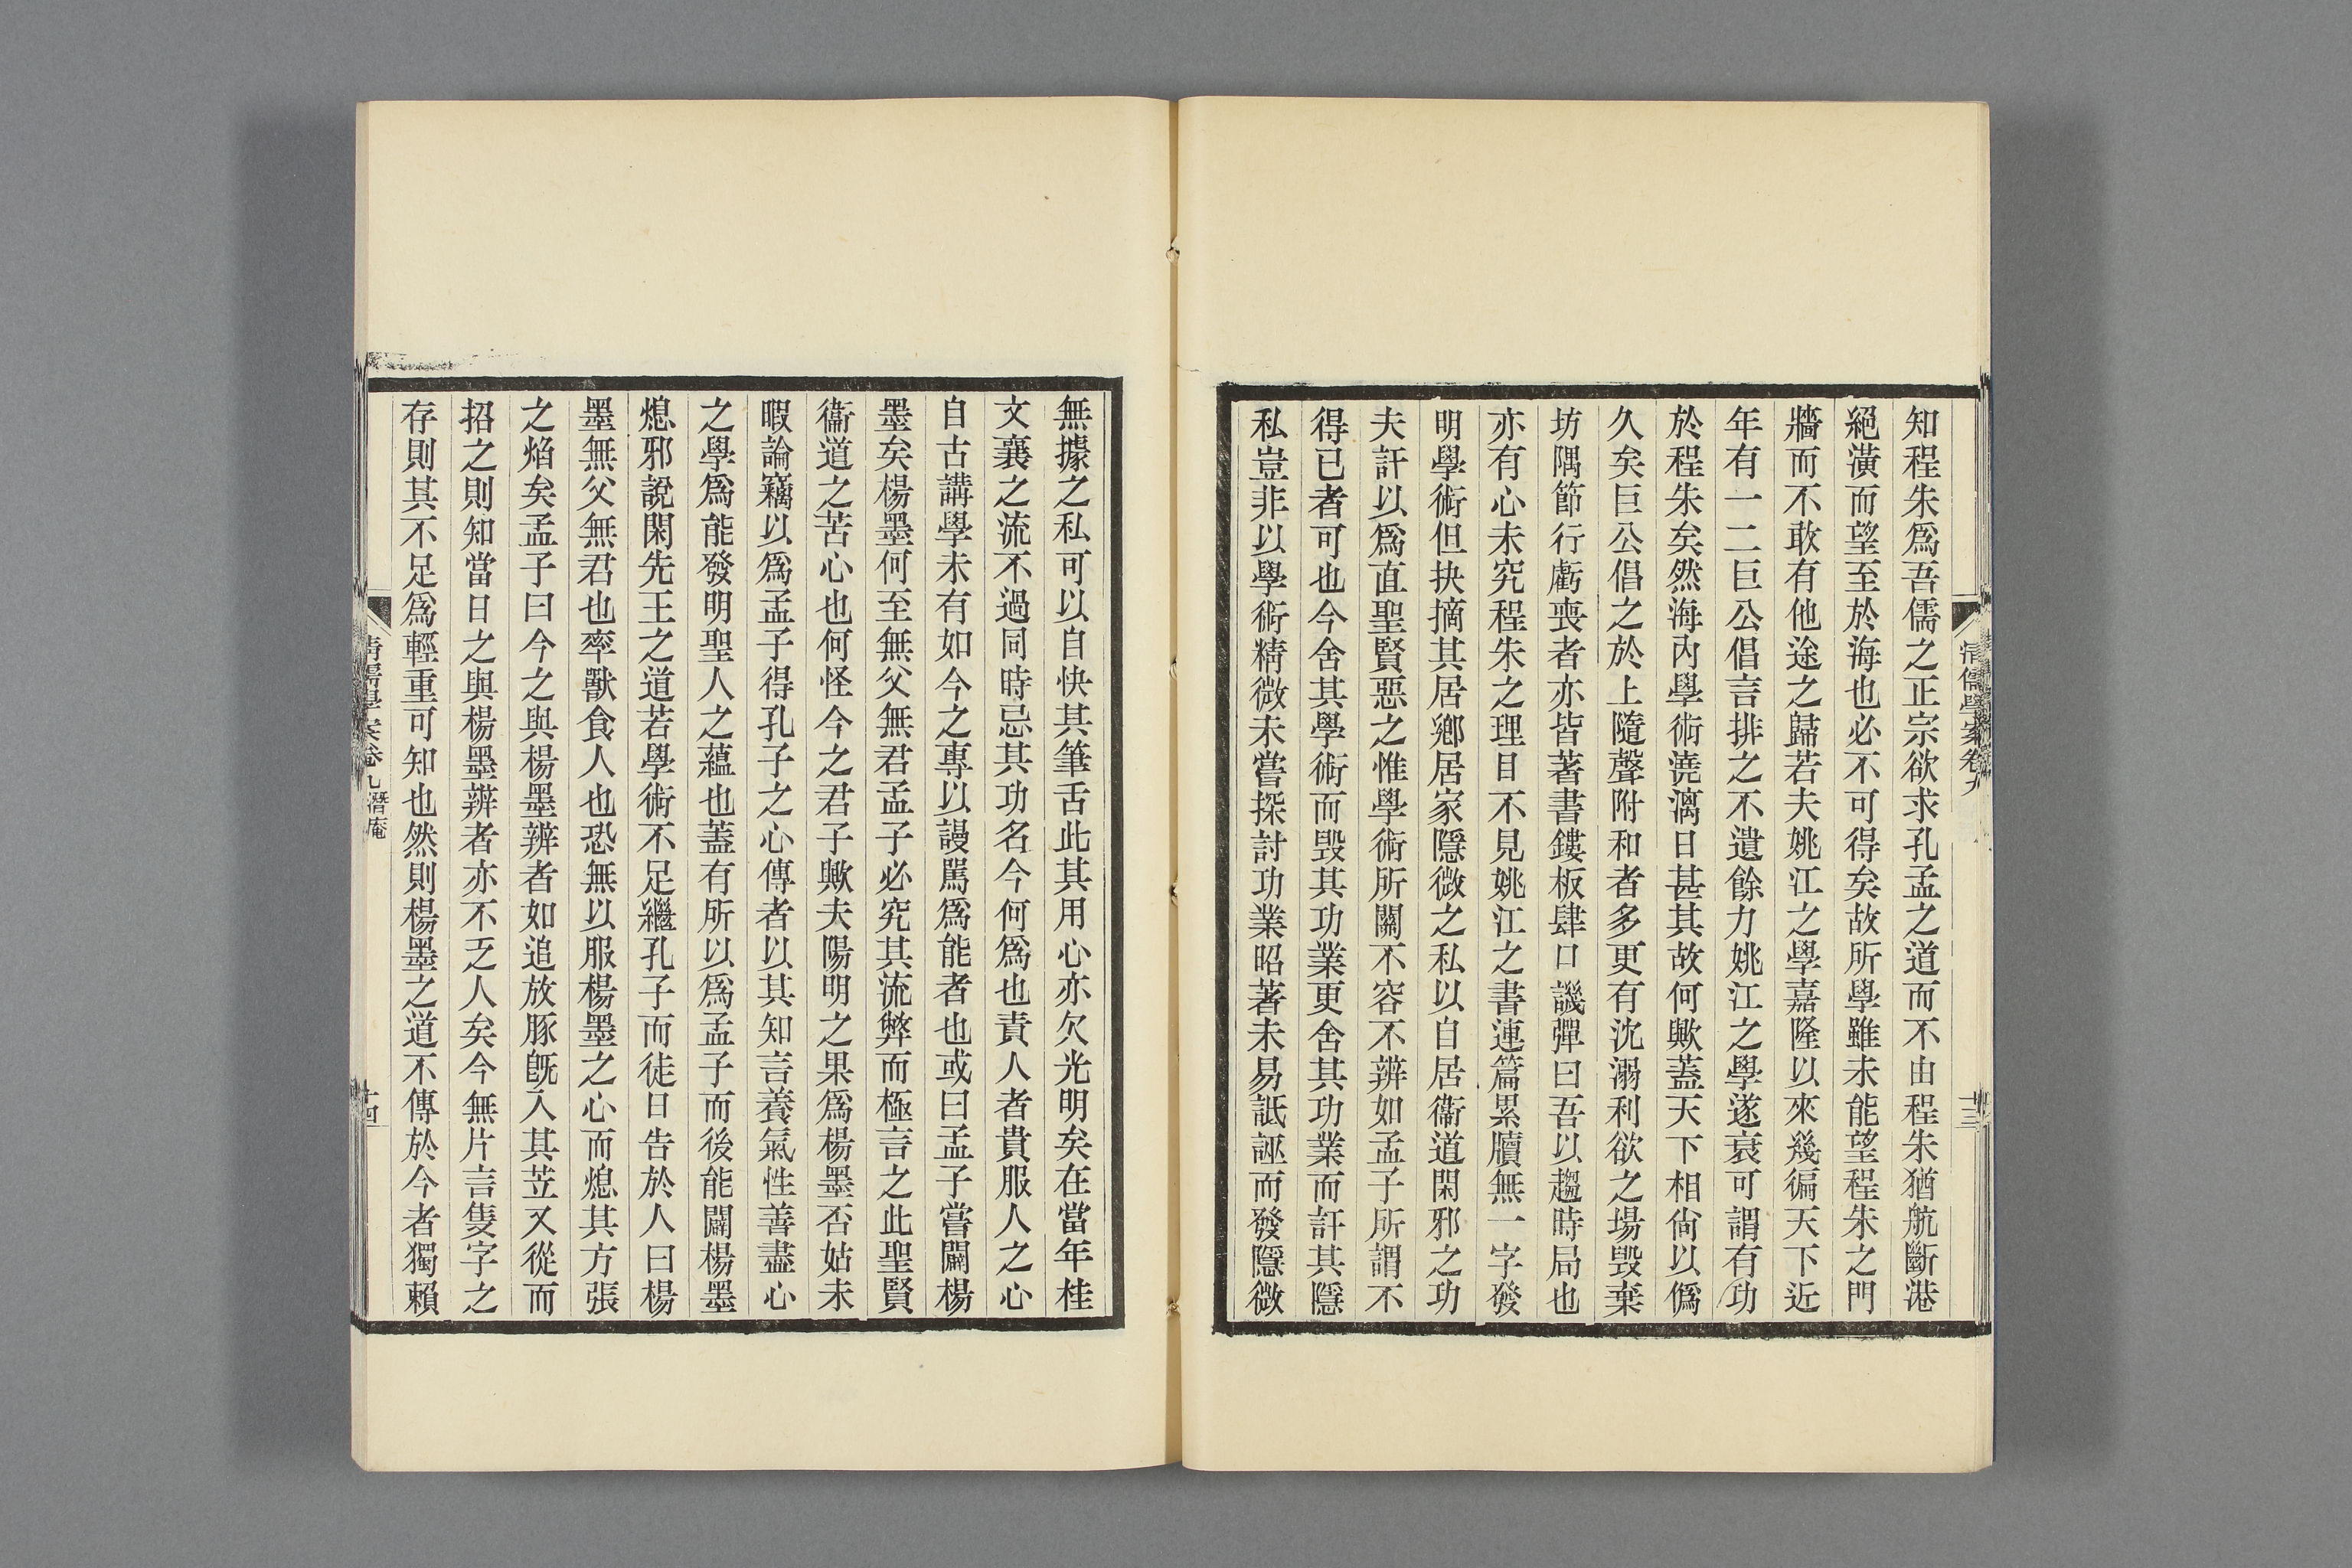 知程朱爲吾儒之正宗欲求孔孟之道而不由程朱猶航斷港
絕潢而望至於海也必不可得矣故所學雖未能望程朱之門
牆而不敢有他途之歸若夫姚江之學嘉隆以來幾徧天下近
年有一二巨公倡言排之不遺餘力姚江之學遂衰可謂有功
於程朱矣然海內學術澆漓日甚其故何歟蓋天下相尙以僞
久矣巨公倡之於上隨聲附和者多更有沈溺利欲之場毀棄
坊隅節行虧喪者亦皆著書鏤板肆口譏彈曰吾以趨時局也
亦有心未究程朱之理目不見姚江之書連篇累牘無一字發
明學術但抉摘其居鄉居家隱微之私以自居衞道閑邪之功
夫訐以爲直聖賢惡之惟學術所關不容不辨如孟子所謂不
得已者可也今舍其學術而毀其功業更舍其功業而訐其隱
私豈非以學術精微未嘗探討功業昭著未易詆誣而發隱微
無據之私可以自快其筆舌此其用心亦欠光明矣在當年桂
文襄之流不過同時忌其功名今何爲也責人者貴服人之心
自古講學未有如今之專以謾罵爲能者也或曰孟子嘗闢楊
墨矣楊墨何至無父無君孟子必究其流弊而極言之此聖賢
衞道之苦心也何怪今之君子歟夫陽明之果爲楊墨否姑未
暇論竊以爲孟子得孔子之心傳者以其知言養氣性善盡心
之學爲能發明聖人之蘊也蓋有所以爲孟子而後能闢楊墨
熄邪說閑先王之道若學術不足繼孔子而徒日告於人曰楊
墨無父無君也率獸食人也恐無以服楊墨之心而熄其方張
之焰矣孟子曰今之與楊墨辨者如追放豚旣入其苙又從而
招之則知當日之與楊墨辨者亦不乏人矣今無片言隻字之
存則其不足爲輕重可知也然則楊墨之道不傳於今者獨賴
清儒學案卷九潛庵
十四